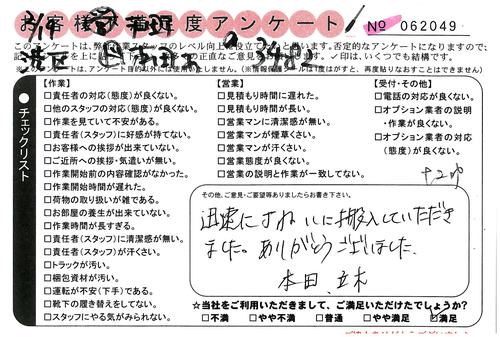 お客様ご満足度アンケート
No 062049
このアンケートは、弊社作業スタッフのレベル向上を役立て
※このアンケートは、アンケート目的以外には使用いたしません。
チェックリスト
【作業】
□責任者の対応(態度)が良くない。
□他のスタッフの対応(態度)が良くない。
□作業を見ていて不安がある。
□責任者(スタッフ)に好感が持てない。
□お客様への挨拶が出来ていない。
□ご近所への挨拶・気遣いが無い。
□作業開始前の内容確認がなかった。
□作業開始時間が遅れた。
□荷物の取り扱いが雑である。
□お部屋の養生が出来ていない。
□作業時間が長すぎる。
□責任者(スタッフ)に清潔感が無い。
□責任者(スタッフ)が汗くさい。
□トラックが汚い。
□梱包資材が汚い。
□運転が不安(下手)である。
□靴下の履き替えをしてない。
□スタッフにやる気がみられない。
【営業】
□見積もり時間に遅れた。
□見積もり時間が長い。
□営業マンに清潔感が無い。
□営業マンが煙草くさい。
□営業マンが汗くさい。
□営業態度が良くない。
□営業の説明と作業が一致してない。
【受付・その他】
□電話の対応が良くない。
□オプション業者の説明
・作業が良くない。
□オプション業者の対応
(態度)が良くない。
その他、ご意見・ご要望等ありましたらお書き下さい。
迅速にていねいに搬入していただき
ました。ありがとうございました。
本田、立木
☆当社をご利用いただきまして、ご満足いただけたでしょうか?
□不満 □やや不満 □普通 □やや満足 □満足